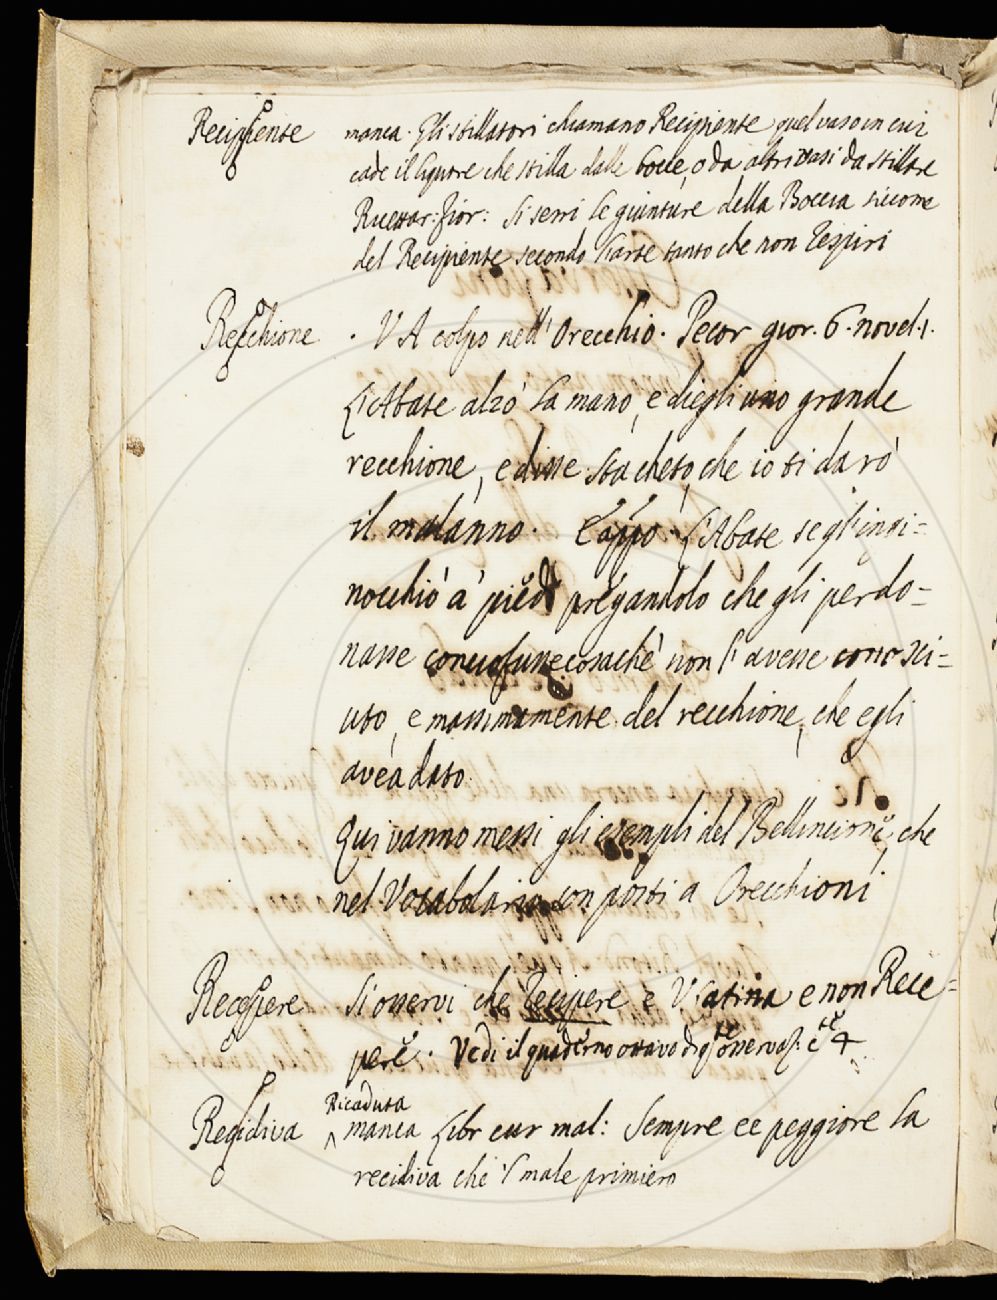 Recipiente manca. Gli stillatori chiamano Recipiente quel vaso in cui
cade il liquore che stilla dalle bocce, o da altri vasi da stillare
Ricettar: Fior: Si serri le giunture della Boccia siccome
del Recipiente secondo l'arte tanto che non respiri
Recchione . V A colpo nell' Orecchio. Pecor gior. 6. novel. 1.
L'Abate alzò la mano, e diegli uno grande
recchione, e disse sta cheto, che io ti darò
il malanno. E appo L'Abate se gl'ingi=
nocchiò à piedi pregandolo che gli perdo=
nasse conciofussecosachè non l'avesse conosci=
uto, e massimamente del recchione, che egli
avea dato.
Qui vanno messi gli esempli del Bellincioni, che
nel Vocabolario son posti a Orecchioni
Recepere Si osservi che Recipere è V Latina e non Rece=
pere. Vedi il quaderno ottavo di q.te osservaz. c.te 4
Recidiva Ricaduta
manca Libr cur mal: Sempre ee peggiore la
recidiva che 'l male primiero